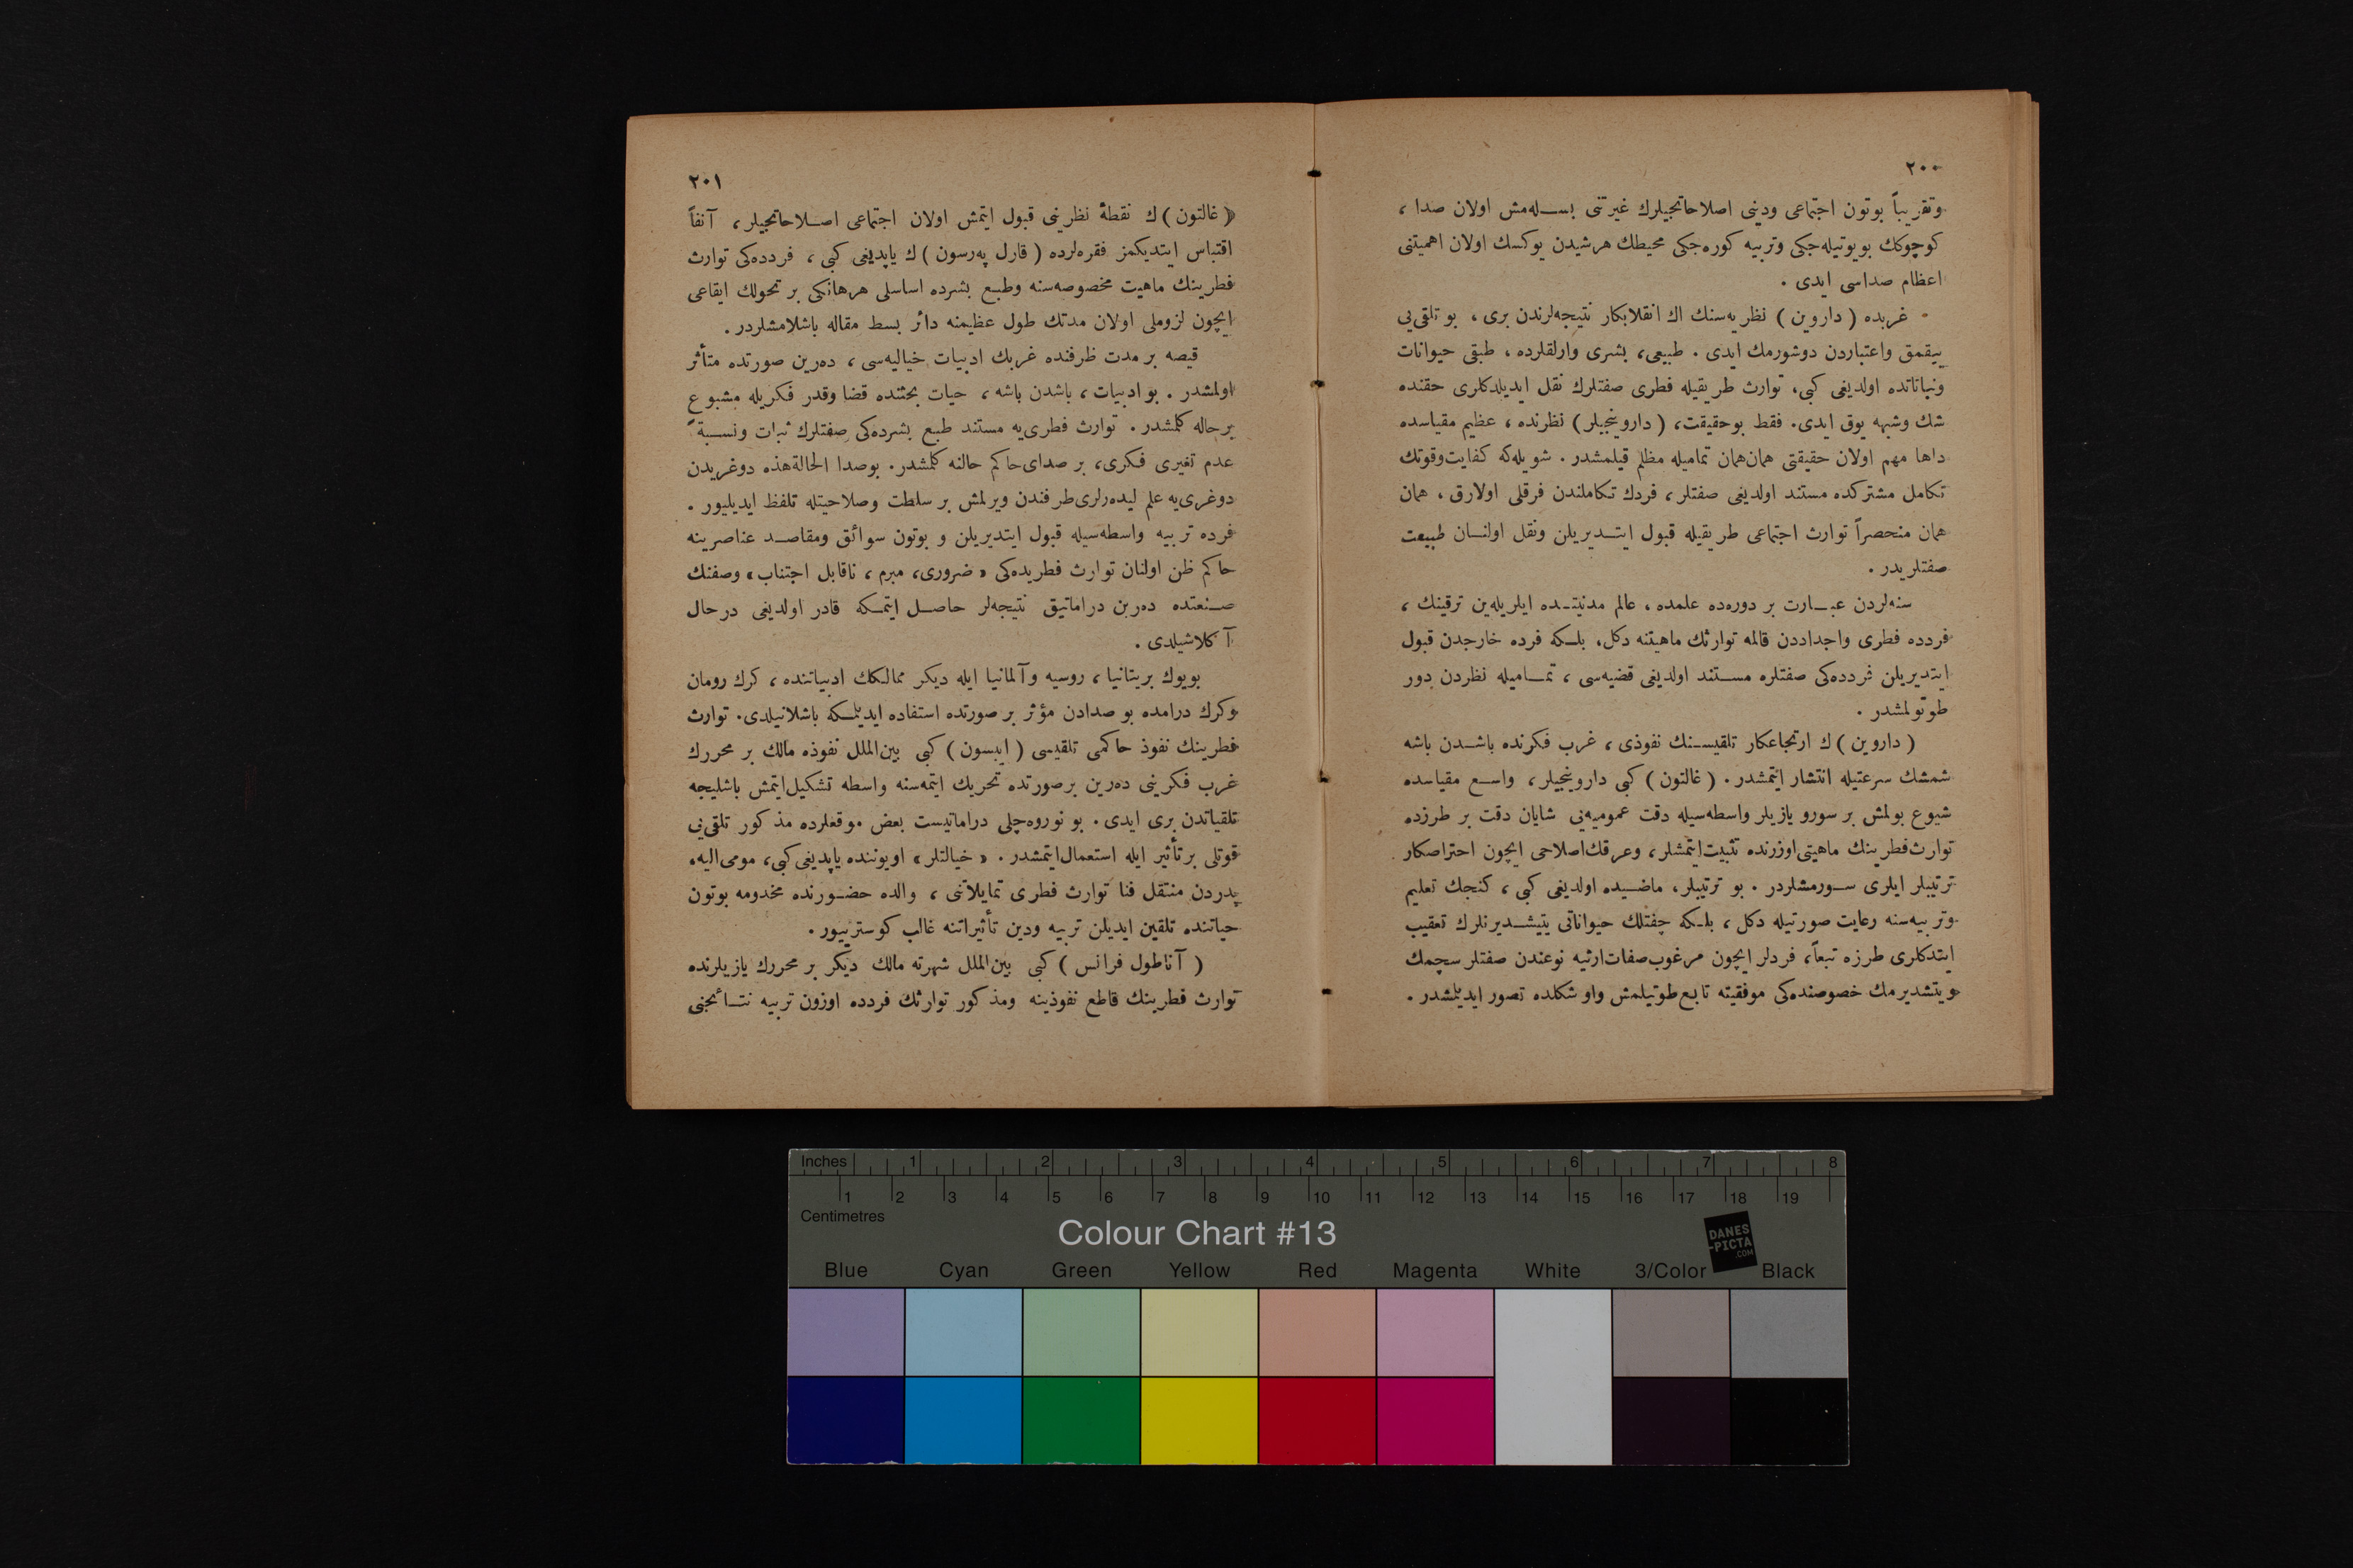 ٢٠٠
وتقریباً بوتون اجتماعی ودینی اصلاحاتجیلرك غیرتنی بسله‌مش اولان صدا ،
كوچوكك بویوتیله‌جكی وتربیه كوره‌جكی محیطك هرشیدن یوكسك اولان اهمیتنی
اعظام صداسی ایدی .
غربده ( داروین ) نظریه‌سنك اك انقلابكار نتیجه‌لرندن بری ، بو تلقی‌یی
ییقمق واعتباردن دوشورمك ایدی . طبیعی، بشری وارلقلرده ، طبقی حیوانات
ونباتاتده اولدیغی كبی، توارث طریقیله فطری صفتلرك نقل ایدیلدكلری حقنده
شك وشبهه یوق ایدی. فقط بوحقیقت، (داروینجیلر) نظرنده ، عظیم مقیاسده
داها مهم اولان حقیقتی همان‌همان تمامیله مظلم قیلمشدر . شویله‌كه كفایت‌وقوتك
تكامل مشتركده مستند اولدیغی صفتلر، فردك تكاملندن فرقلی اولارق ، همان
همان منحصراً توارث اجتماعی طریقیله قبول ایتدیریلن ونقل اولنان طبیعت
صفتلریدر .
سنه‌لردن عبارت بر دوره‌ده علمده ، عالم مدنیتده ایلریله‌ین ترقینك ،
فردده فطری واجداددن قالمه توارثك ماهیتنه دكل، بلكه فرده خارجدن قبول
ایتدیریلن فردده‌كی صفتلره مستند اولدیغی قضیه‌سی ، تمامیله نظردن دور
طوتولمشدر .
( داروین )ك ارتجاعكار تلقیسنك نفوذی ، غرب فكرنده باشدن باشه
شمشك سرعتیله انتشار ایتمشدر . (غالتون) كبی داروینجیلر ، واسع مقیاسده
شیوع بولمش بر سورو یازیلر واسطه‌سیله دقت عمومیه‌یی شایان دقت بر طرزده
توارث‌فطرینك ماهیتی‌اوزرنده تثبیت‌ایتمشلر، وعرقك‌اصلاحی ایچون احتراصكار
ترتیبلر ایلری سورمشلردر . بو ترتیبلر، ماضیده اولدیغی كبی ، كنجك تعلیم
وتربیه‌سنه رعایت صورتیله دكل ، بلكه چفتلك حیواناتی یتیشدیرنلرك تعقیب
ایتدكلری طرزه تبعاً، فردلر ایچون مرغوب‌صفات‌ارثیه نوعندن صفتلر سچمك
ویتشدیرمك خصوصنده‌كی موفقیته تابع‌طوتیلمش واو شكلده تصور ایدیلمشدر .
٢٠١
( غالتون )ك نقطهٔ نظرینی قبول ایتمش اولان اجتماعی اصلاحاتجیلر ، آنفاً
اقتباس ایتدیكمز فقره‌لرده ( قارل په‌رسون )ك یاپدیغی كبی ، فردده‌كی توارث
فطرینك ماهیت مخصوصه‌سنه وطبع بشرده اساسلی هرهانكی بر تحولك ایقاعی
ایچون لزوملی اولان مدتك طول عظیمنه دائر بسط مقاله باشلامشلردر .
قیصه بر مدت ظرفنده غربك ادبیات خیالیه‌سی ، ده‌رین صورتده متأثر
اولمشدر . بو ادبیات ، باشدن باشه ، حیات بحثنده قضا وقدر فكریله مشبوع
برحاله كلمشدر . توارث فطری‌یه مستند طبع بشرده‌كی صفتلرك ثبات ونسبةً
عدم تغیری فكری، بر صدای‌حاكم حالنه كلمشدر. بوصدا الحالةهذه دوغریدن
دوغری‌یه علم لیده‌رلری‌طرفندن ویرلمش بر سلطت وصلاحیتله تلفظ ایدیلیور .
فرده تربیه واسطه‌سیله قبول ایتدیریلن و بوتون سوائق ومقاصد عناصرینه
حاكم ظن اولنان توارث فطریده‌كی «ضروری، مبرم ، ناقابل اجتناب» وصفنك
صنعتده ده‌رین دراماتیق نتیجه‌لر حاصل ایتمكه قادر اولدیغی درحال
آكلاشیلدی .
بویوك بریتانیا ، روسیه وآلمانیا ایله دیكر ممالكك ادبیاتنده ، كرك رومان
وكرك درامده بو صدادن مؤثر بر صورتده استفاده ایدیلمكه باشلانیلدی. توارث
فطرینك نفوذ حاكمی تلقیسی ( ایبسون ) كبی بین‌الملل نفوذه مالك بر محررك
غرب فكرینی ده‌رین برصورتده تحریك ایتمه‌سنه واسطه تشكیل‌ایتمش باشلیجه
تلقیاتدن بری ایدی . بو نوروه‌چلی دراماتیست بعض موقعلرده مذكور تلقی‌یی
قوتلی برتأثیر ایله استعمال‌ایتمشدر . « خیالتلر » اویوننده یاپدیغی‌كبی، مومی‌الیه،
پدردن منتقل فنا توارث فطری تمایلاتنی ، والده حضورنده مخدومه بوتون
حیاتنده تلقین ایدیلن تربیه ودین تأثیراتنه غالب كوسترییور .
( آناطول فرانس ) كبی بین‌الملل شهرته مالك دیكر بر محررك یازیلرنده
توارث فطرینك قاطع نفوذینه ومذكور توارثك فردده اوزون تربیه نتائجنی
Inches 1 2 3 4 5 6 7 8
1 2 3 4 5 6 7 8 9 10 11 12 13 14 15 16 17 18 19
Centimetres
Colour Chart #13
DANES
-PICTA
.COM
Blue Cyan Green Yellow Red Magenta White 3/Color Black